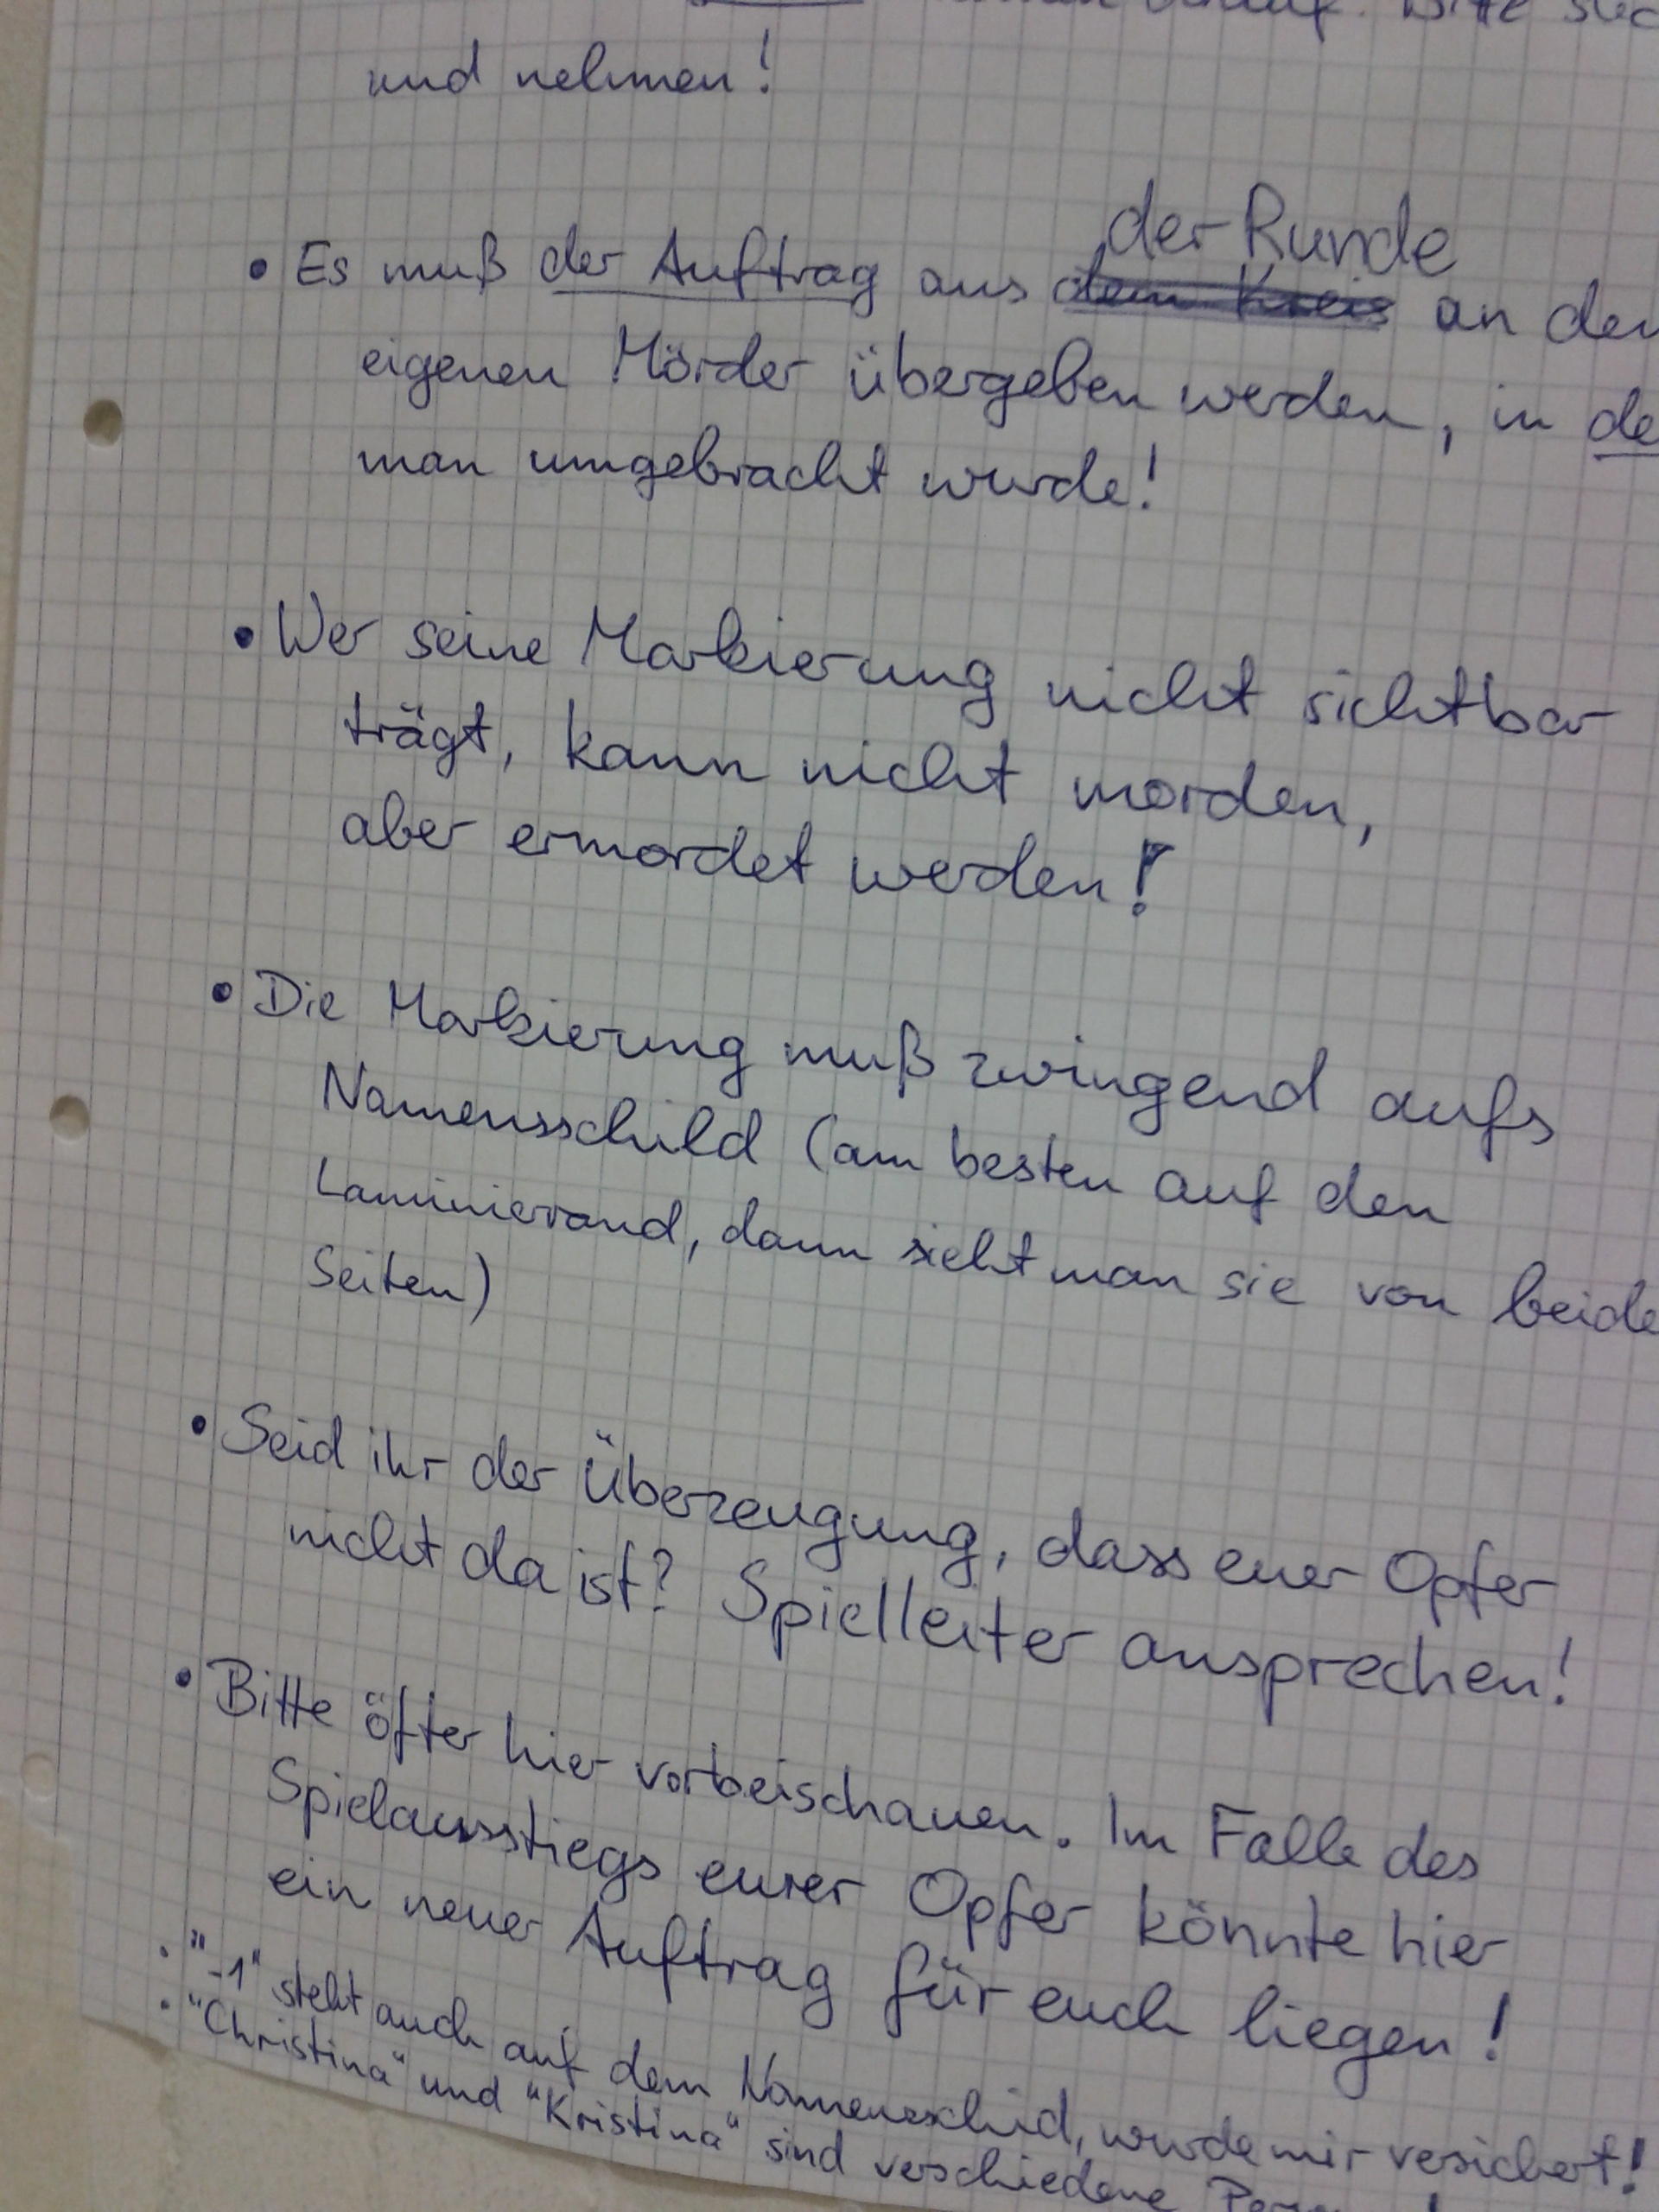 und nehmen!
der Runde
• Es muß der Auftrag aus dem Kreis an den
eigenen Mörder übergeben werden, in de
man umgebracht wurde!
• Wer seine Markierung nicht sichtbar
trägt, kann nicht morden,
aber ermordet werden!
• Die Markierung muß zwingend aufs
Namensschild (am besten auf den
Laminierand, dann sieht man sie von beide
Seiten)
• Seid ihr der Überzeugung, dass euer Opfer
nicht da ist? Spielleiter ansprechen!
• Bitte öfter hier vorbeischauen. Im Falle des
Spielausstiegs eurer Opfer könnte hier
ein neuer Auftrag für euch liegen!
• "-1" steht auch auf dem Namenschid, wurde mir versichert!
• "Christina" und "Kristina" sind verschiedene